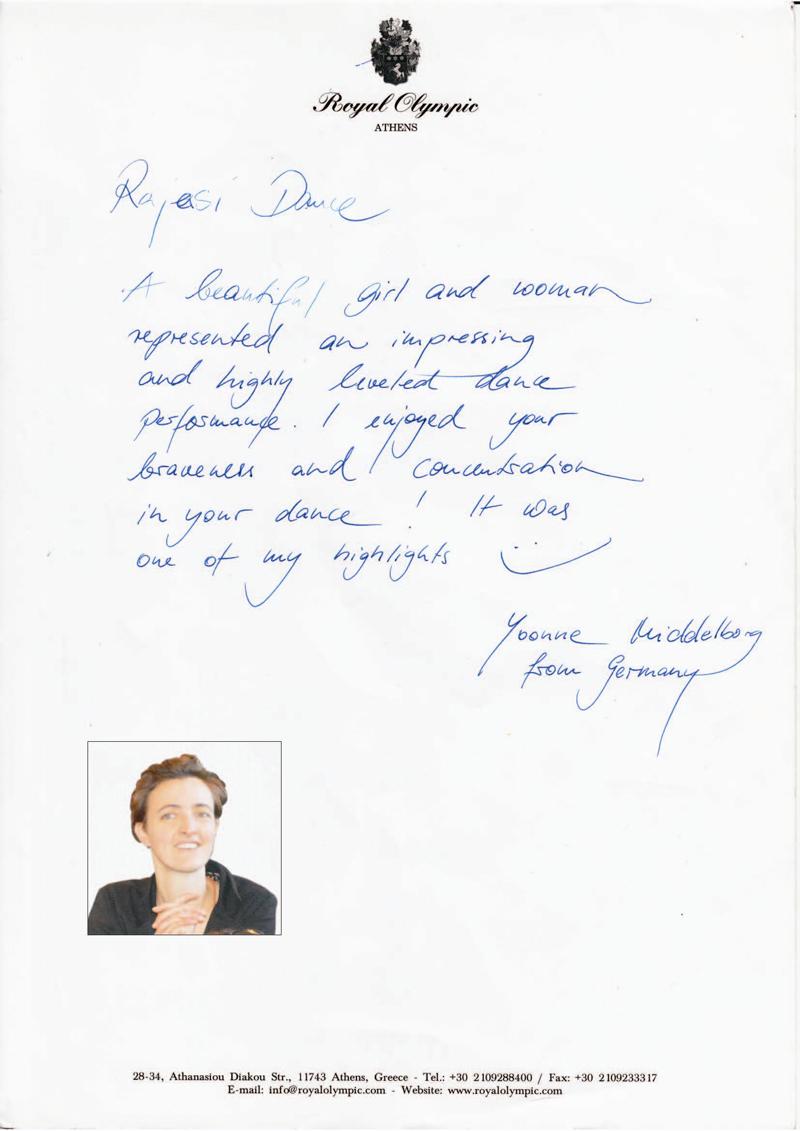 Royal Olympic
ATHENS
Rajasi Dance
A beautiful girl and woman
represented an impressing
and highly leveled dance
performance. I enjoyed your
braveness and concentration
in your dance! It was
one of my highlights
Yvonne Middelborg
from Germany
28-34, Athanasiou Diakou Str., 11743 Athens, Greece - Tel.: +30 2109288400 / Fax: +30 2109233317
E-mail: info@royalolympic.com - Website: www.royalolympic.com